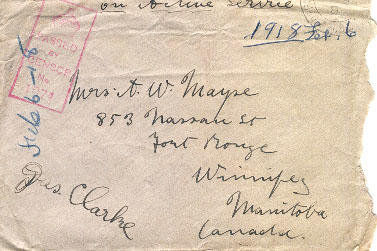 on Active Service
1918 Feb. 6
PASSED
BY
CENSOR
No
Feb 6-18
Mrs. A. W. Mayse
853 Nassau St
Fort Rouge
Winnipeg
Manitoba
Canada.
Jas. Clarke